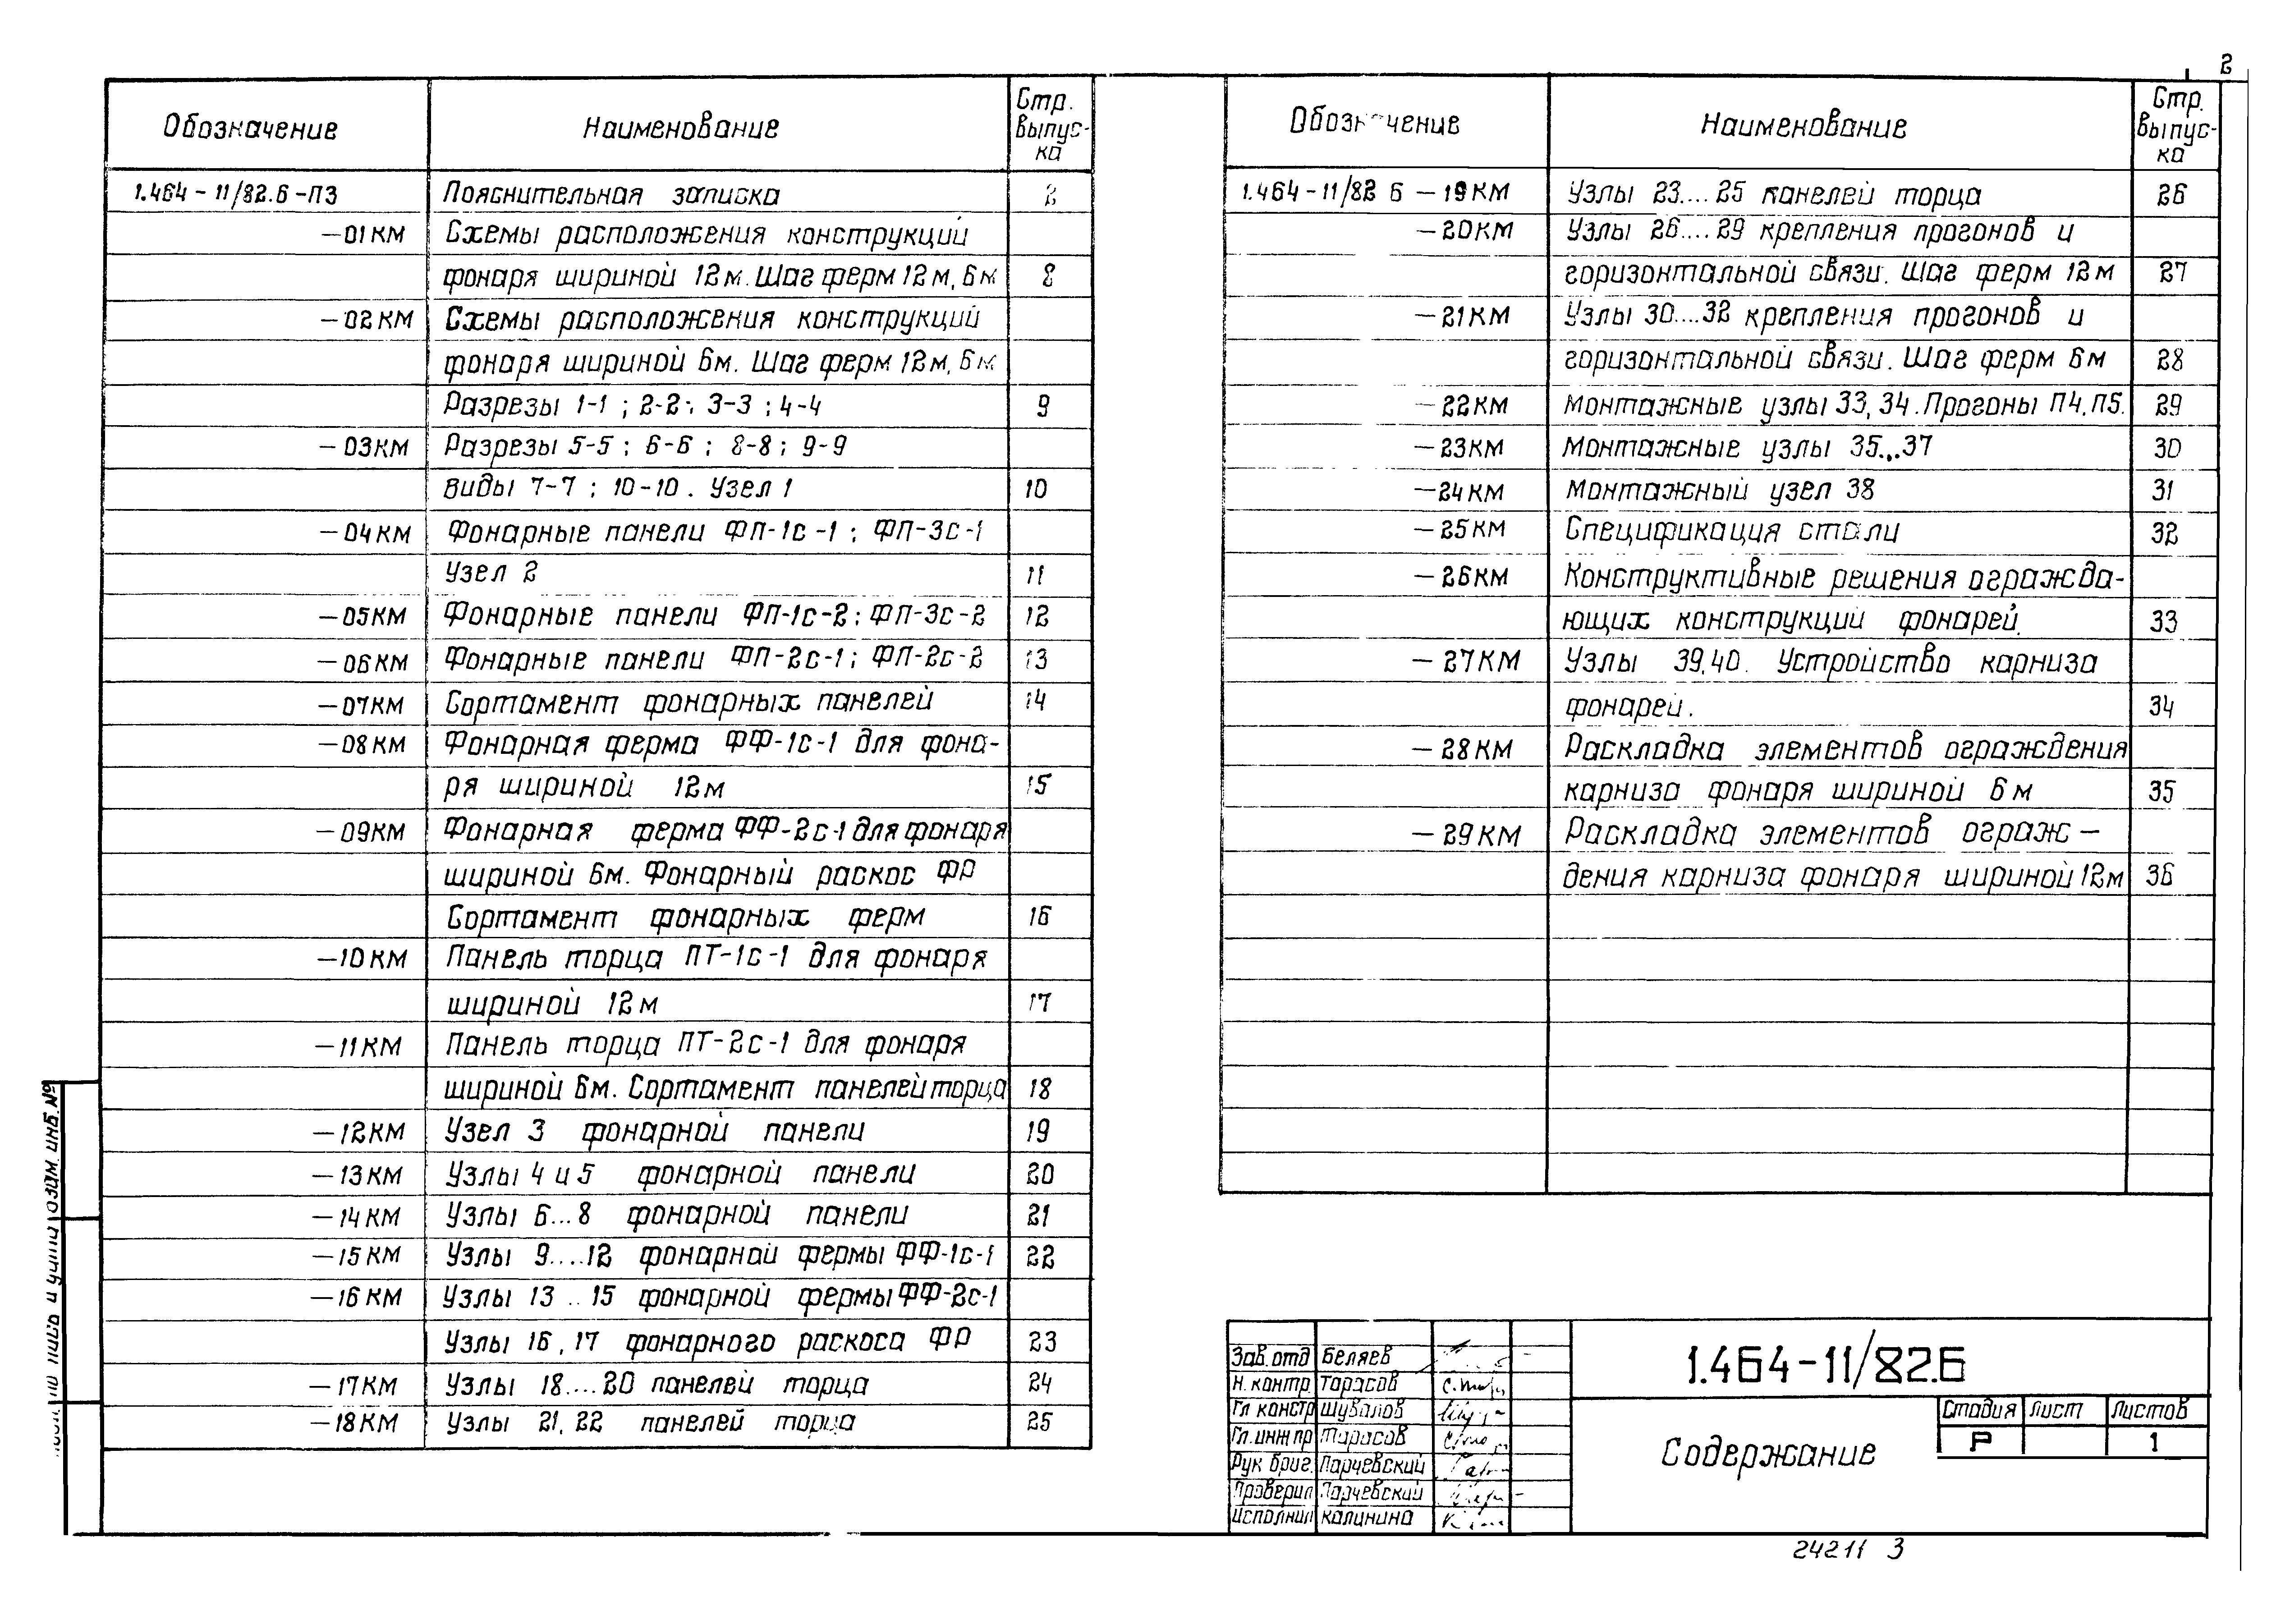 2
Обозначение Наименование Стр. выпус-ка
1.464-11/82.6-ПЗ Пояснительная записка 2
-01КМ Схемы расположения конструкций
фонаря шириной 12м. Шаг ферм 12м, 6м 8
-02КМ Схемы расположения конструкций
фонаря шириной 6м. Шаг ферм 12м, 6м
Разрезы 1-1; 2-2; 3-3; 4-4 9
-03КМ Разрезы 5-5; 6-6; 8-8; 9-9
Виды 7-7; 10-10. Узел 1 10
-04КМ Фонарные панели ФП-1с-1; ФП-3с-1
Узел 2 11
-05КМ Фонарные панели ФП-1с-2; ФП-3с-2 12
-06КМ Фонарные панели ФП-2с-1; ФП-2с-2 13
-07КМ Сортамент фонарных панелей 14
-08КМ Фонарная ферма ФФ-1с-1 для фона-
ря шириной 12м 15
-09КМ Фонарная ферма ФФ-2с-1 для фонаря
шириной 6м. Фонарный раскос ФР
Сортамент фонарных ферм 16
-10КМ Панель торца ПТ-1с-1 для фонаря
шириной 12м 17
-11КМ Панель торца ПТ-2с-1 для фонаря
шириной 6м. Сортамент панелей торца 18
-12КМ Узел 3 фонарной панели 19
-13КМ Узлы 4 и 5 фонарной панели 20
-14КМ Узлы 6...8 фонарной панели 21
-15КМ Узлы 9....12 фонарной фермы ФФ-1с-1 22
-16КМ Узлы 13..15 фонарной фермы ФФ-2с-1
Узлы 16, 17 фонарного раскоса ФР 23
-17КМ Узлы 18....20 панелей торца 24
-18КМ Узлы 21, 22 панелей торца 25
Обозначение Наименование Стр. выпус-ка
1.464-11/82 6-19КМ Узлы 23....25 панелей торца 26
-20КМ Узлы 26....29 крепления прогонов и
горизонтальной связи. Шаг ферм 12м 27
-21КМ Узлы 30....32 крепления прогонов и
горизонтальной связи. Шаг ферм 6м 28
-22КМ Монтажные узлы 33, 34. Прогоны П4, П5. 29
-23КМ Монтажные узлы 35...37 30
-24КМ Монтажный узел 38 31
-25КМ Спецификация стали 32
-26КМ Конструктивные решения огражда-
ющих конструкций фонарей. 33
-27КМ Узлы 39,40. Устройство карниза
фонарей. 34
-28КМ Раскладка элементов ограждения
карниза фонаря шириной 6м 35
-29КМ Раскладка элементов ограж-
дения карниза фонаря шириной 12м 36
Зав.отд Беляев
Н. контр. Тарасов
Гл констр Шувалов
Гл. инж пр Тарасов
Рук бриг. Парчевский
Проверил Парчевский
Исполнил Калинина
1.464-11/82.6
Содержание
Стадия Лист Листов
Р 1
24211 3